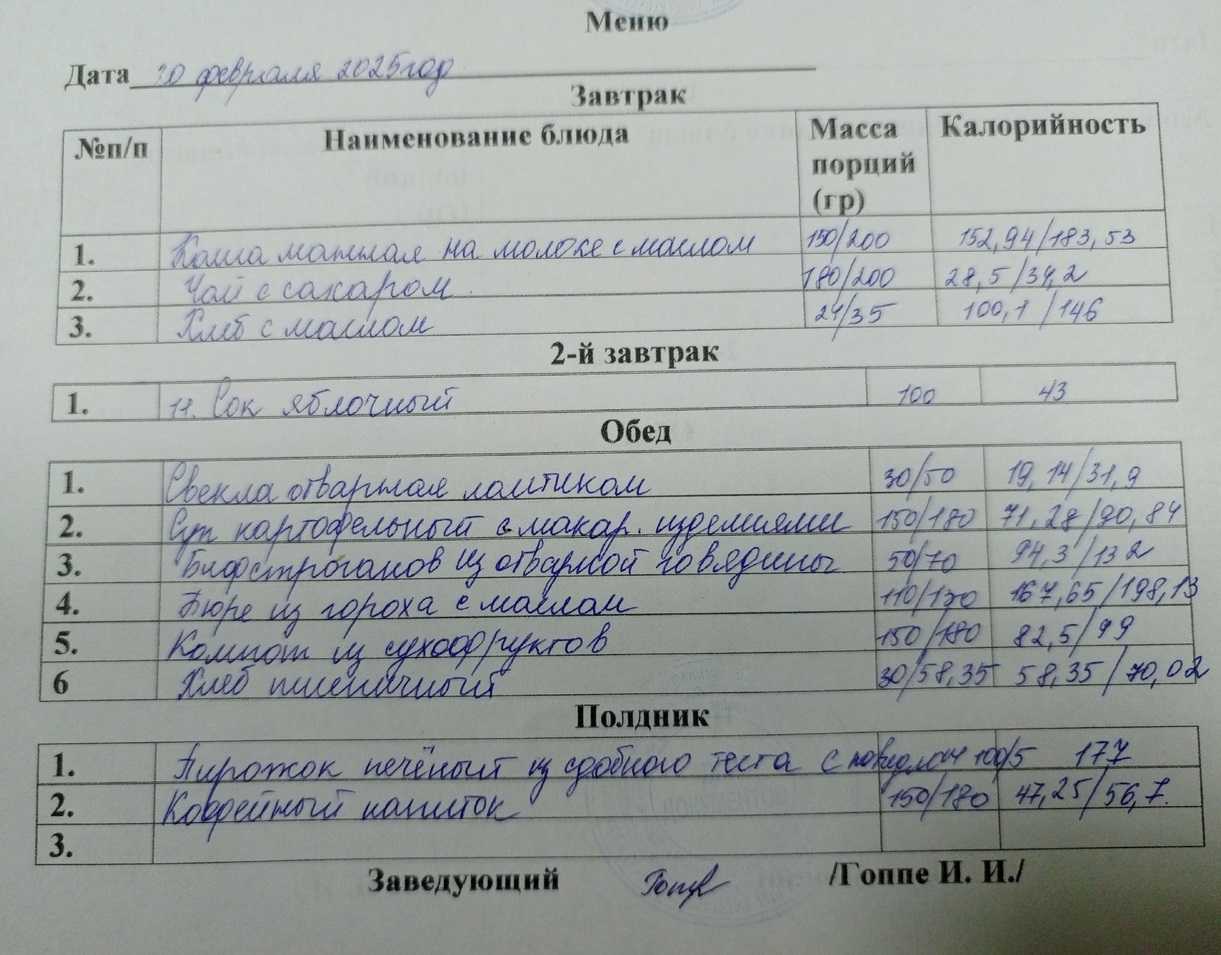 Меню
Дата 20 февраля 2025год
Завтрак
№п/п Наименование блюда Масса порций (гр) Калорийность
1. Каша манная на молоке с маслом 150/200 152,94/183,53
2. Чай с сахаром 180/200 28,5/34,2
3. Хлеб с маслом 24/35 100,1/146
2-й завтрак
1. 11. Сок яблочный 100 43
Обед
1. Свекла отварная ломтиком 30/50 19,14/31,9
2. Суп картофельный с макар. изделиями 150/180 71,28/90,84
3. Бифстроганов из отварной говядины 50/70 94,3/132
4. Пюре из гороха с маслом 110/130 167,65/198,13
5. Компот из сухофруктов 150/180 82,5/99
6 Хлеб пшеничный 30/58,35 58,35/70,02
Полдник
1. Пирожок печёный из сдобного теста с повидлом 100/5 177
2. Кофейный напиток 150/180 47,25/56,7.
3.
Заведующий /Гоппе И. И./